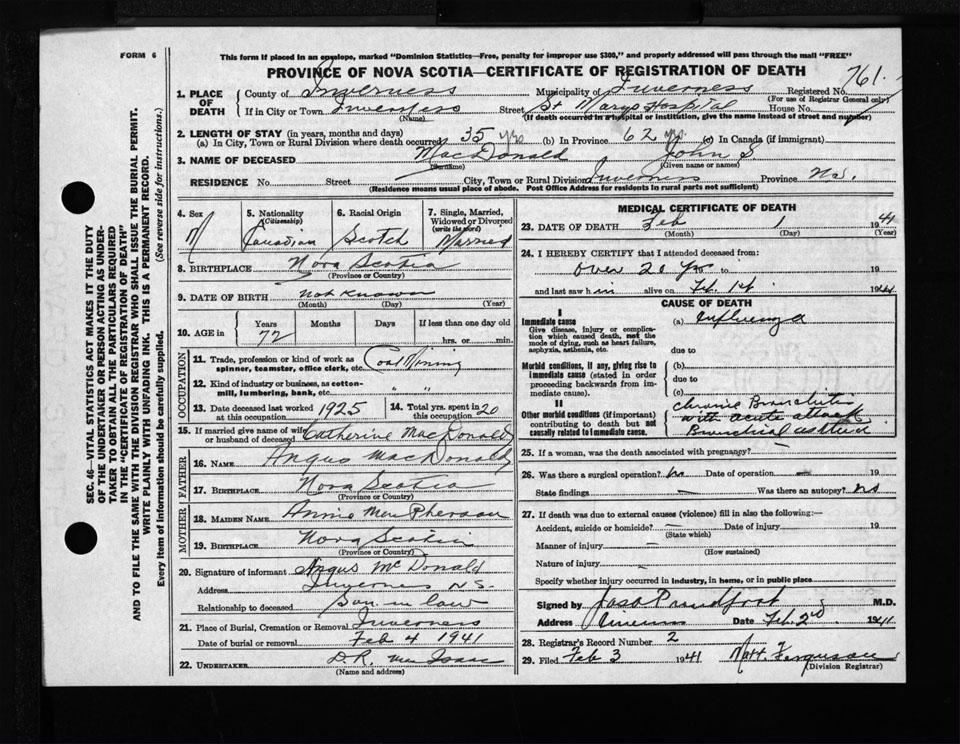 FORM 6
This form if placed in an envelope, marked "Dominion Statistics—Free, penalty for improper use $300," and properly addressed will pass through the mail "FREE"
PROVINCE OF NOVA SCOTIA—CERTIFICATE OF REGISTRATION OF DEATH
SEC. 46—VITAL STATISTICS ACT MAKES IT THE DUTY
OF THE UNDERTAKER OR PERSON ACTING AS UNDER-
TAKER TO OBTAIN ALL THE PARTICULARS REQUIRED
IN THE "CERTIFICATE OF REGISTRATION OF DEATH"
AND TO FILE THE SAME WITH THE DIVISION REGISTRAR WHO SHALL ISSUE THE BURIAL PERMIT.
WRITE PLAINLY WITH UNFADING INK. THIS IS A PERMANENT RECORD.
Every item of information should be carefully supplied. (See reverse side for instructions.)
1. PLACE OF DEATH
County of Inverness Municipality of Inverness Registered No. 761
(For use of Registrar General only)
If in City or Town Inverness Street St Marys Hospital House No.
(Name) (If death occurred in a hospital or institution, give the name instead of street and number)
2. LENGTH OF STAY (in years, months and days)
(a) In City, Town or Rural Division where death occurred 35 yrs (b) In Province 62 yrs. (c) In Canada (if immigrant)
3. NAME OF DECEASED MacDonald John S
(Surname) (Given name or names)
RESIDENCE No. Street City, Town or Rural Division Inverness Province N.S.
(Residence means usual place of abode. Post Office Address for residents in rural parts not sufficient)
4. Sex M
5. Nationality (Citizenship) Canadian
6. Racial Origin Scotch
7. Single, Married, Widowed or Divorced (write the word) Married
8. BIRTHPLACE Nova Scotia
(Province or Country)
9. DATE OF BIRTH not known
(Month) (Day) (Year)
10. AGE in Years 72 Months Days If less than one day old
hrs. or min.
OCCUPATION
11. Trade, profession or kind of work as spinner, teamster, office clerk, etc. Coal Mining
12. Kind of industry or business, as cotton-mill, lumbering, bank, etc. " "
13. Date deceased last worked at this occupation 1925
14. Total yrs. spent in this occupation 20
15. If married give name of wife or husband of deceased Catherine MacDonald
FATHER
16. NAME Angus MacDonald
17. BIRTHPLACE Nova Scotia
(Province or Country)
MOTHER
18. MAIDEN NAME Annie MacPherson
19. BIRTHPLACE Nova Scotia
(Province or Country)
20. Signature of informant Angus McDonald
Address Inverness N.S.
Relationship to deceased Son in law
21. Place of Burial, Cremation or Removal Inverness
Date of burial or removal Feb 4 1941
22. UNDERTAKER D.R. MacIsaac
(Name and address)
MEDICAL CERTIFICATE OF DEATH
23. DATE OF DEATH Feb 1 1941
(Month) (Day) (Year)
24. I HEREBY CERTIFY that I attended deceased from:
over 20 yrs to 19
and last saw h im alive on Feb. 1st 1941
CAUSE OF DEATH
I
Immediate cause
Give disease, injury or complication which caused death, not the mode of dying, such as heart failure, asphyxia, asthenia, etc.
(a) Influenza
due to
Morbid conditions, if any, giving rise to immediate cause (stated in order proceeding backwards from immediate cause).
(b)
due to
(c)
II
Other morbid conditions (if important) contributing to death but not causally related to immediate cause.
Chronic Bronchitis
with acute attack
Bronchial asthma
25. If a woman, was the death associated with pregnancy?
26. Was there a surgical operation? no Date of operation — 19
State findings — Was there an autopsy? no
27. If death was due to external causes (violence) fill in also the following:—
Accident, suicide or homicide? — Date of injury 19
(State which)
Manner of injury —
(How sustained)
Nature of injury —
Specify whether injury occurred in industry, in home, or in public place
Signed by Jas. Proudfoot M.D.
Address Inverness Date Feb. 2nd 1941
28. Registrar's Record Number 2
29. Filed Feb 3 1941 Matt. Ferguson
(Division Registrar)